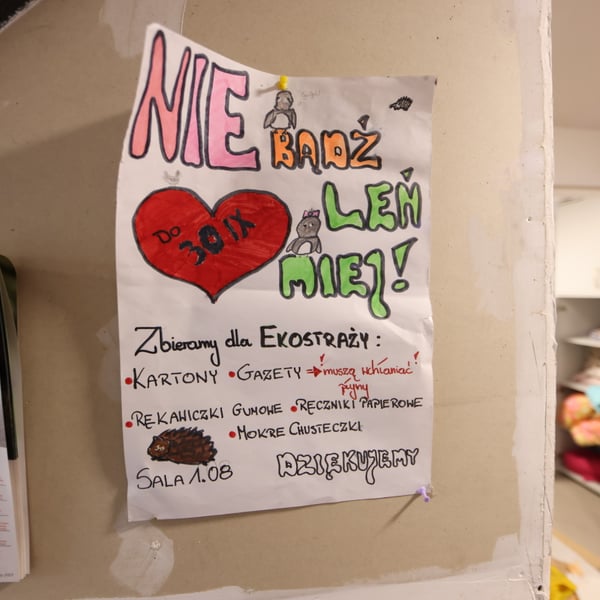 NIE
BĄDŹ
LEŃ
MIEJ!
DO
30 IX
Zbieramy dla EKOSTRAŻY:
• KARTONY • GAZETY → ! muszą wchłaniać !
płyny
• RĘKAWICZKI GUMOWE • RĘCZNIKI PAPIEROWE
• MOKRE CHUSTECZKI
SALA 1.08
DZIĘKUJEMY